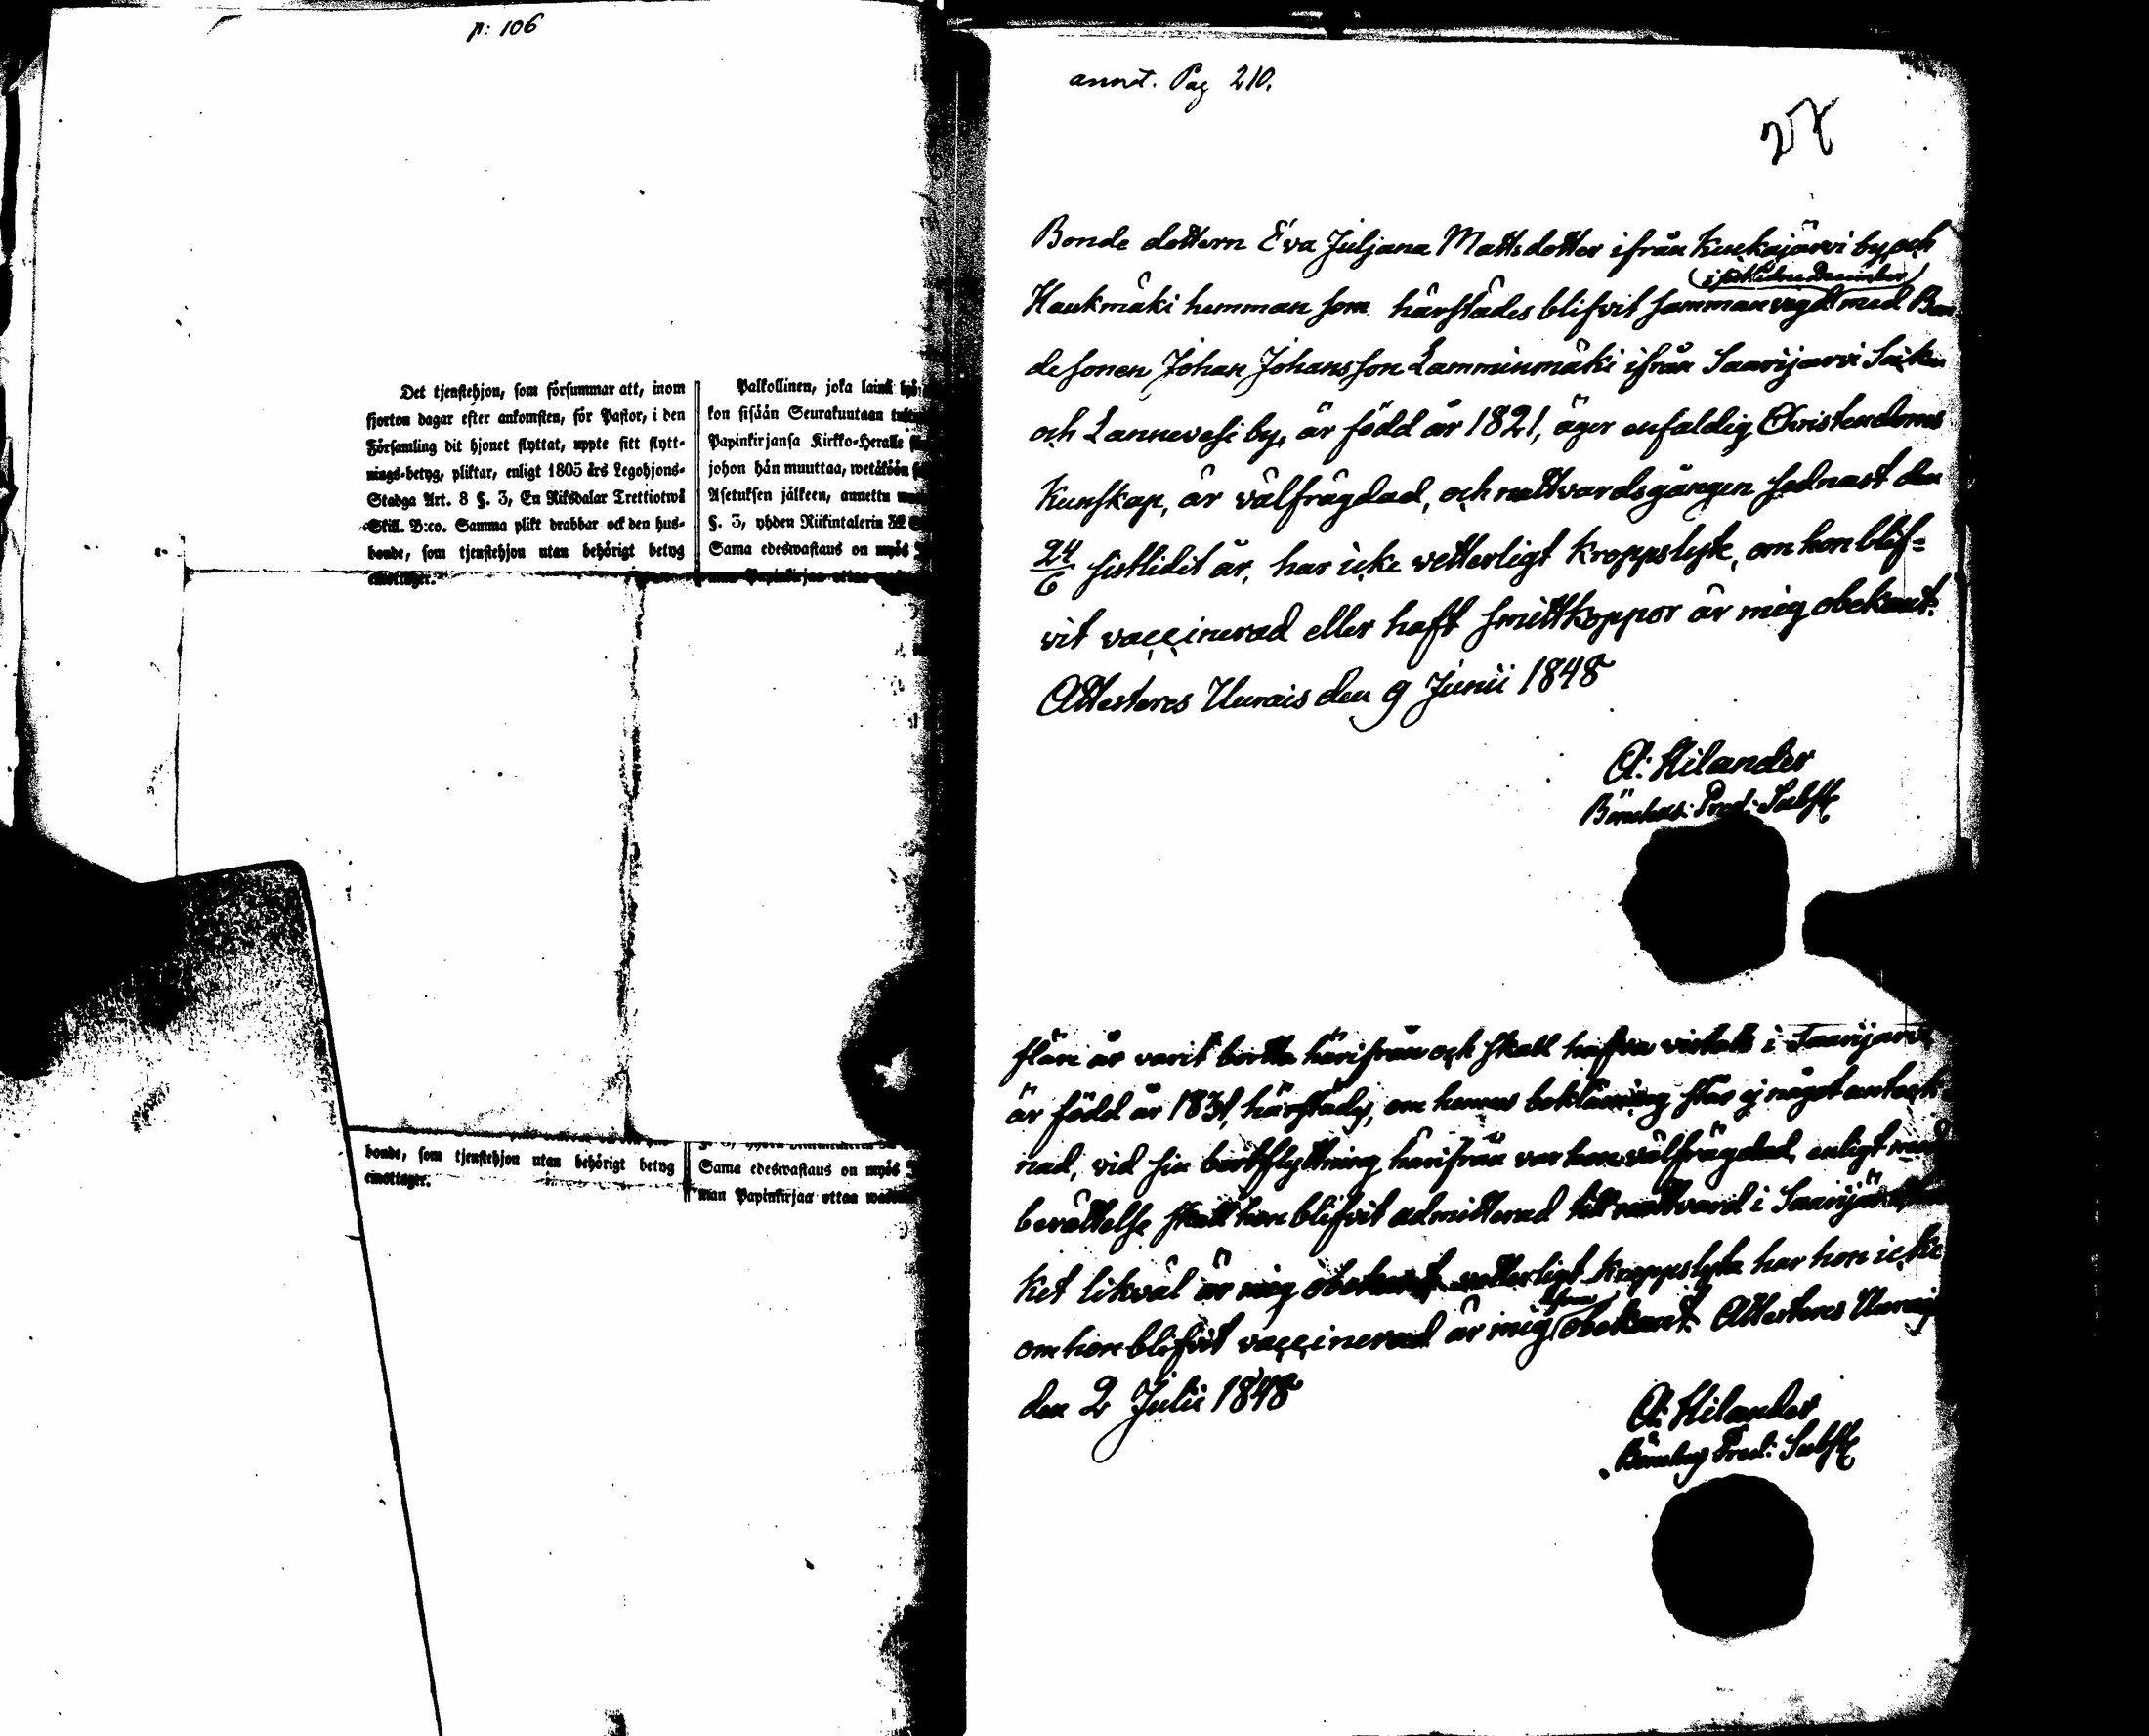 p: 106
Det tjenstehjon, som försummar att, inom
fjorton dagar efter ankomsten, för Pastor, i den
Församling dit hjonet flyttat, uppte sitt flytt-
nings-betyg, pliktar, enligt 1805 års Legohjons-
Stadga Art. 8 §. 3, En Riksdalar Trettiotwå
Skill. B:co. Samma plikt drabbar ock den hus-
bonde, som tjenstehjon utan behörigt betyg
emottager.
Palkollinen, joka
kon sisään Seurakuntaan
Papinkirjansa Kirkko-Heralle
johon hän muuttaa, wetäköön
Asetuksen jälkeen, annettu
§. 3, yhden Riikintalerin
Sama edeswastaus on myös
man Papinkirjaa ottaa
bonde, som tjenstehjon utan behörigt betyg
emottager.
Sama edeswastaus on myös
man Papinkirjaa ottaa
annot. Pag 210.
27
Bonde dottern Eva Juljana Mattsdotter ifrån Kuekajärvi by och
(sistlidne December)
Haukmäki hemman som härstädes blifvit sammanvigd med Bon
de sonen Johan Johansson Lamminmäki ifrån Saarijarvi Socken
och Lannevesi by, är född år 1821, äger enfaldig Christendoms
kunskap, är välfrägdad, och nattvardsgången sednast den
24/6 sistlidit år, har icke vetterligt kroppslyte, om hon blif=
vit vaccinerad eller haft smittkoppor är mig obekant.
Attesteres Uurais den 9 Junii 1848
A: Hilander
Bönehus: Pred: Subst
flere år varit borta härifrån och skall hafva vistats i Saarijarvi
är född år 1831, härstädes, om hennes bekläning står ej något anteck
nad, vid sin bortflyttning härifrån var hon välfrägdad, enligt
berättelse skall hon blifvit admitterad till nattvard i
ket likväl är mig obekant, vetterligt kroppslyte har hon icke
om hon blifvit vaccinerad är mig obekant. Attesteres Uurais
den 2 Julii 1848
A: Hilander
Bönehus Pred: Subst